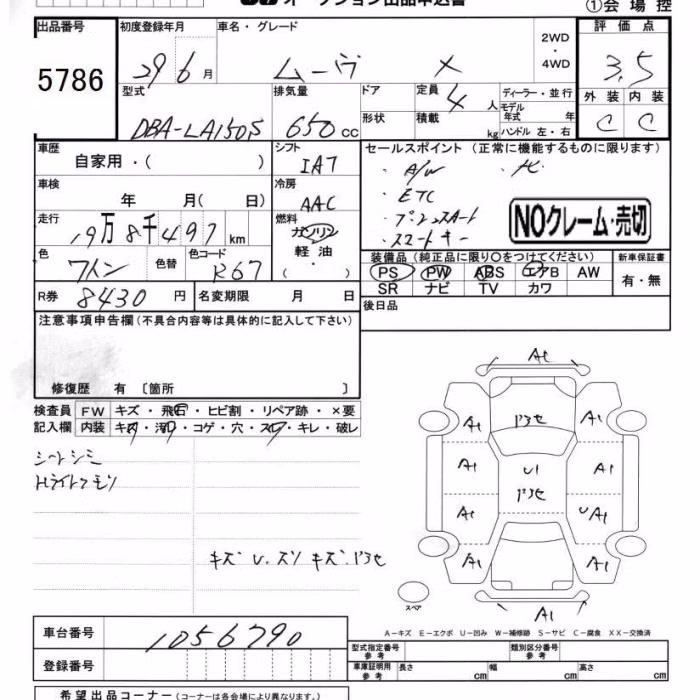 オークション出品申込書
①会場控
出品番号
5786
初度登録年月
29 6月
車名・グレード
ムーヴ X
2WD・4WD
評価点
3.5
外装 内装
C C
型式
DBA-LA150S
排気量
650 cc
ドア
形状
定員
4 人
積載
kg
ディーラー・並行
モデル年式 年
ハンドル 左・右
車歴
自家用・( )
シフト
IAT
セールスポイント (正常に機能するものに限ります)
・A/W
・ETC
・プッシュスタート
・スマートキー
NOクレーム・売切
車検
年 月( 日)
冷房
AAC
走行
19万8千497 km
燃料
ガソリン
軽油
( ・ )
色
ワイン
色替
色コード
R67
装備品 (純正品に限り○をつけてください)
新車保証書
PS PW ABS エアB AW
SR ナビ TV カワ
有・無
R券
8430 円
名変期限 月 日
後日品
注意事項申告欄 (不具合内容等は具体的に記入して下さい)
修復歴 有 〔箇所 〕
検査員記入欄
FW キズ・飛石・ヒビ割・リペア跡・×要
内装 キズ・汚れ・コゲ・穴・スレ・キレ・破レ
シートシミ
Hライトクモリ
キズ U.スリキズ.ドヨセ
A1
ドヨセ
A1 A1
A1 U1 A1
ドヨセ
A1 UA1
A1 A1
A1
スペア
A-キズ E-エクボ U-凹み W-補修跡 S-サビ C-腐食 XX-交換済
車台番号
1056790
登録番号
型式指定番号 参考
類別区分番号 参考
車庫証明用 参考
長さ cm
幅 cm
高さ cm
希望出品コーナー (コーナーは各会場により異なります。)